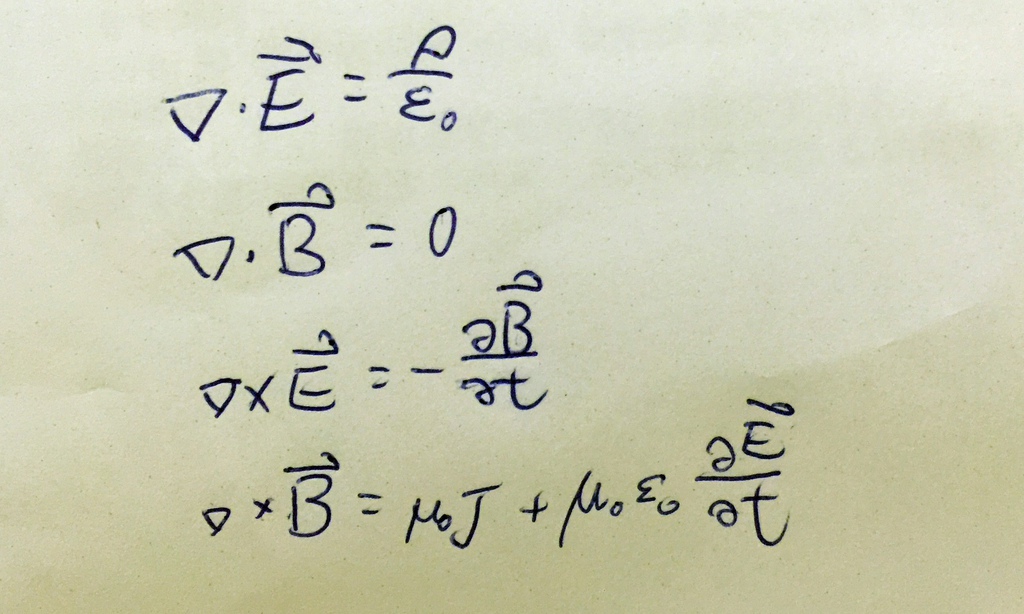 ∇·E⃗ = ρ/ε₀
∇·B⃗ = 0
∇×E⃗ = -∂B⃗/∂t
∇×B⃗ = μ₀J + μ₀ε₀ ∂E⃗/∂t